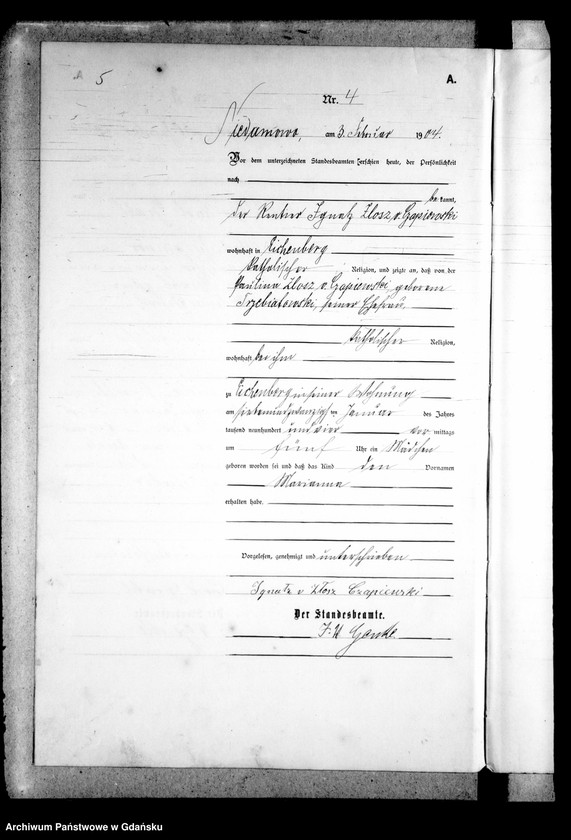 5
A.
Nr. 4
Niedamowo, am 3. Februar 1904.
Vor dem unterzeichneten Standesbeamten erschien heute, der Persönlichkeit
nach
be kannt,
der Rentner Ignatz Zlosz v. Czapiewski
wohnhaft in Eichenberg
katholischer Religion, und zeigte an, daß von der
Paulina Zlosz v. Czapiewski, geborene
Trzebiatowski, seiner Ehefrau
katholischer Religion,
wohnhaft bei ihm
zu Eichenberg in seiner Wohnung
am siebenundzwanzigsten Januar des Jahres
tausend neunhundert und vier vor mittags
um fünf Uhr ein Mädchen
geboren worden sei und daß das Kind den Vornamen
Marianna
erhalten habe.
Vorgelesen, genehmigt und unterschrieben
Ignatz v Zlosz Czapiewski
Der Standesbeamte.
Archiwum Państwowe w Gdańsku